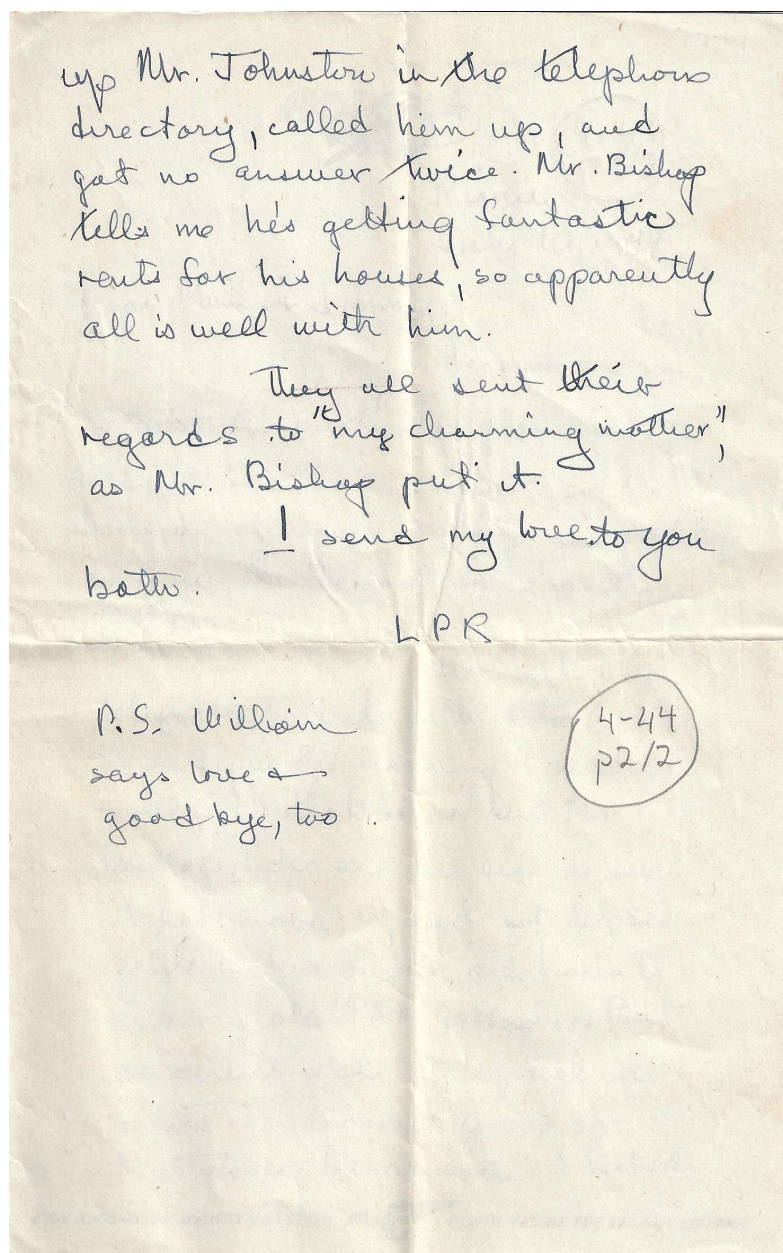 up Mr. Johnston in the telephone
directory, called him up, and
got no answer twice. Mr. Bishop
tells me he's getting fantastic
rents for his houses, so apparently
all is well with him.
They all sent their
regards to "my charming mother",
as Mr. Bishop put it.
I send my love to you
both.
LPR
P.S. William
says love &
goodbye, too.
4-44
p2/2